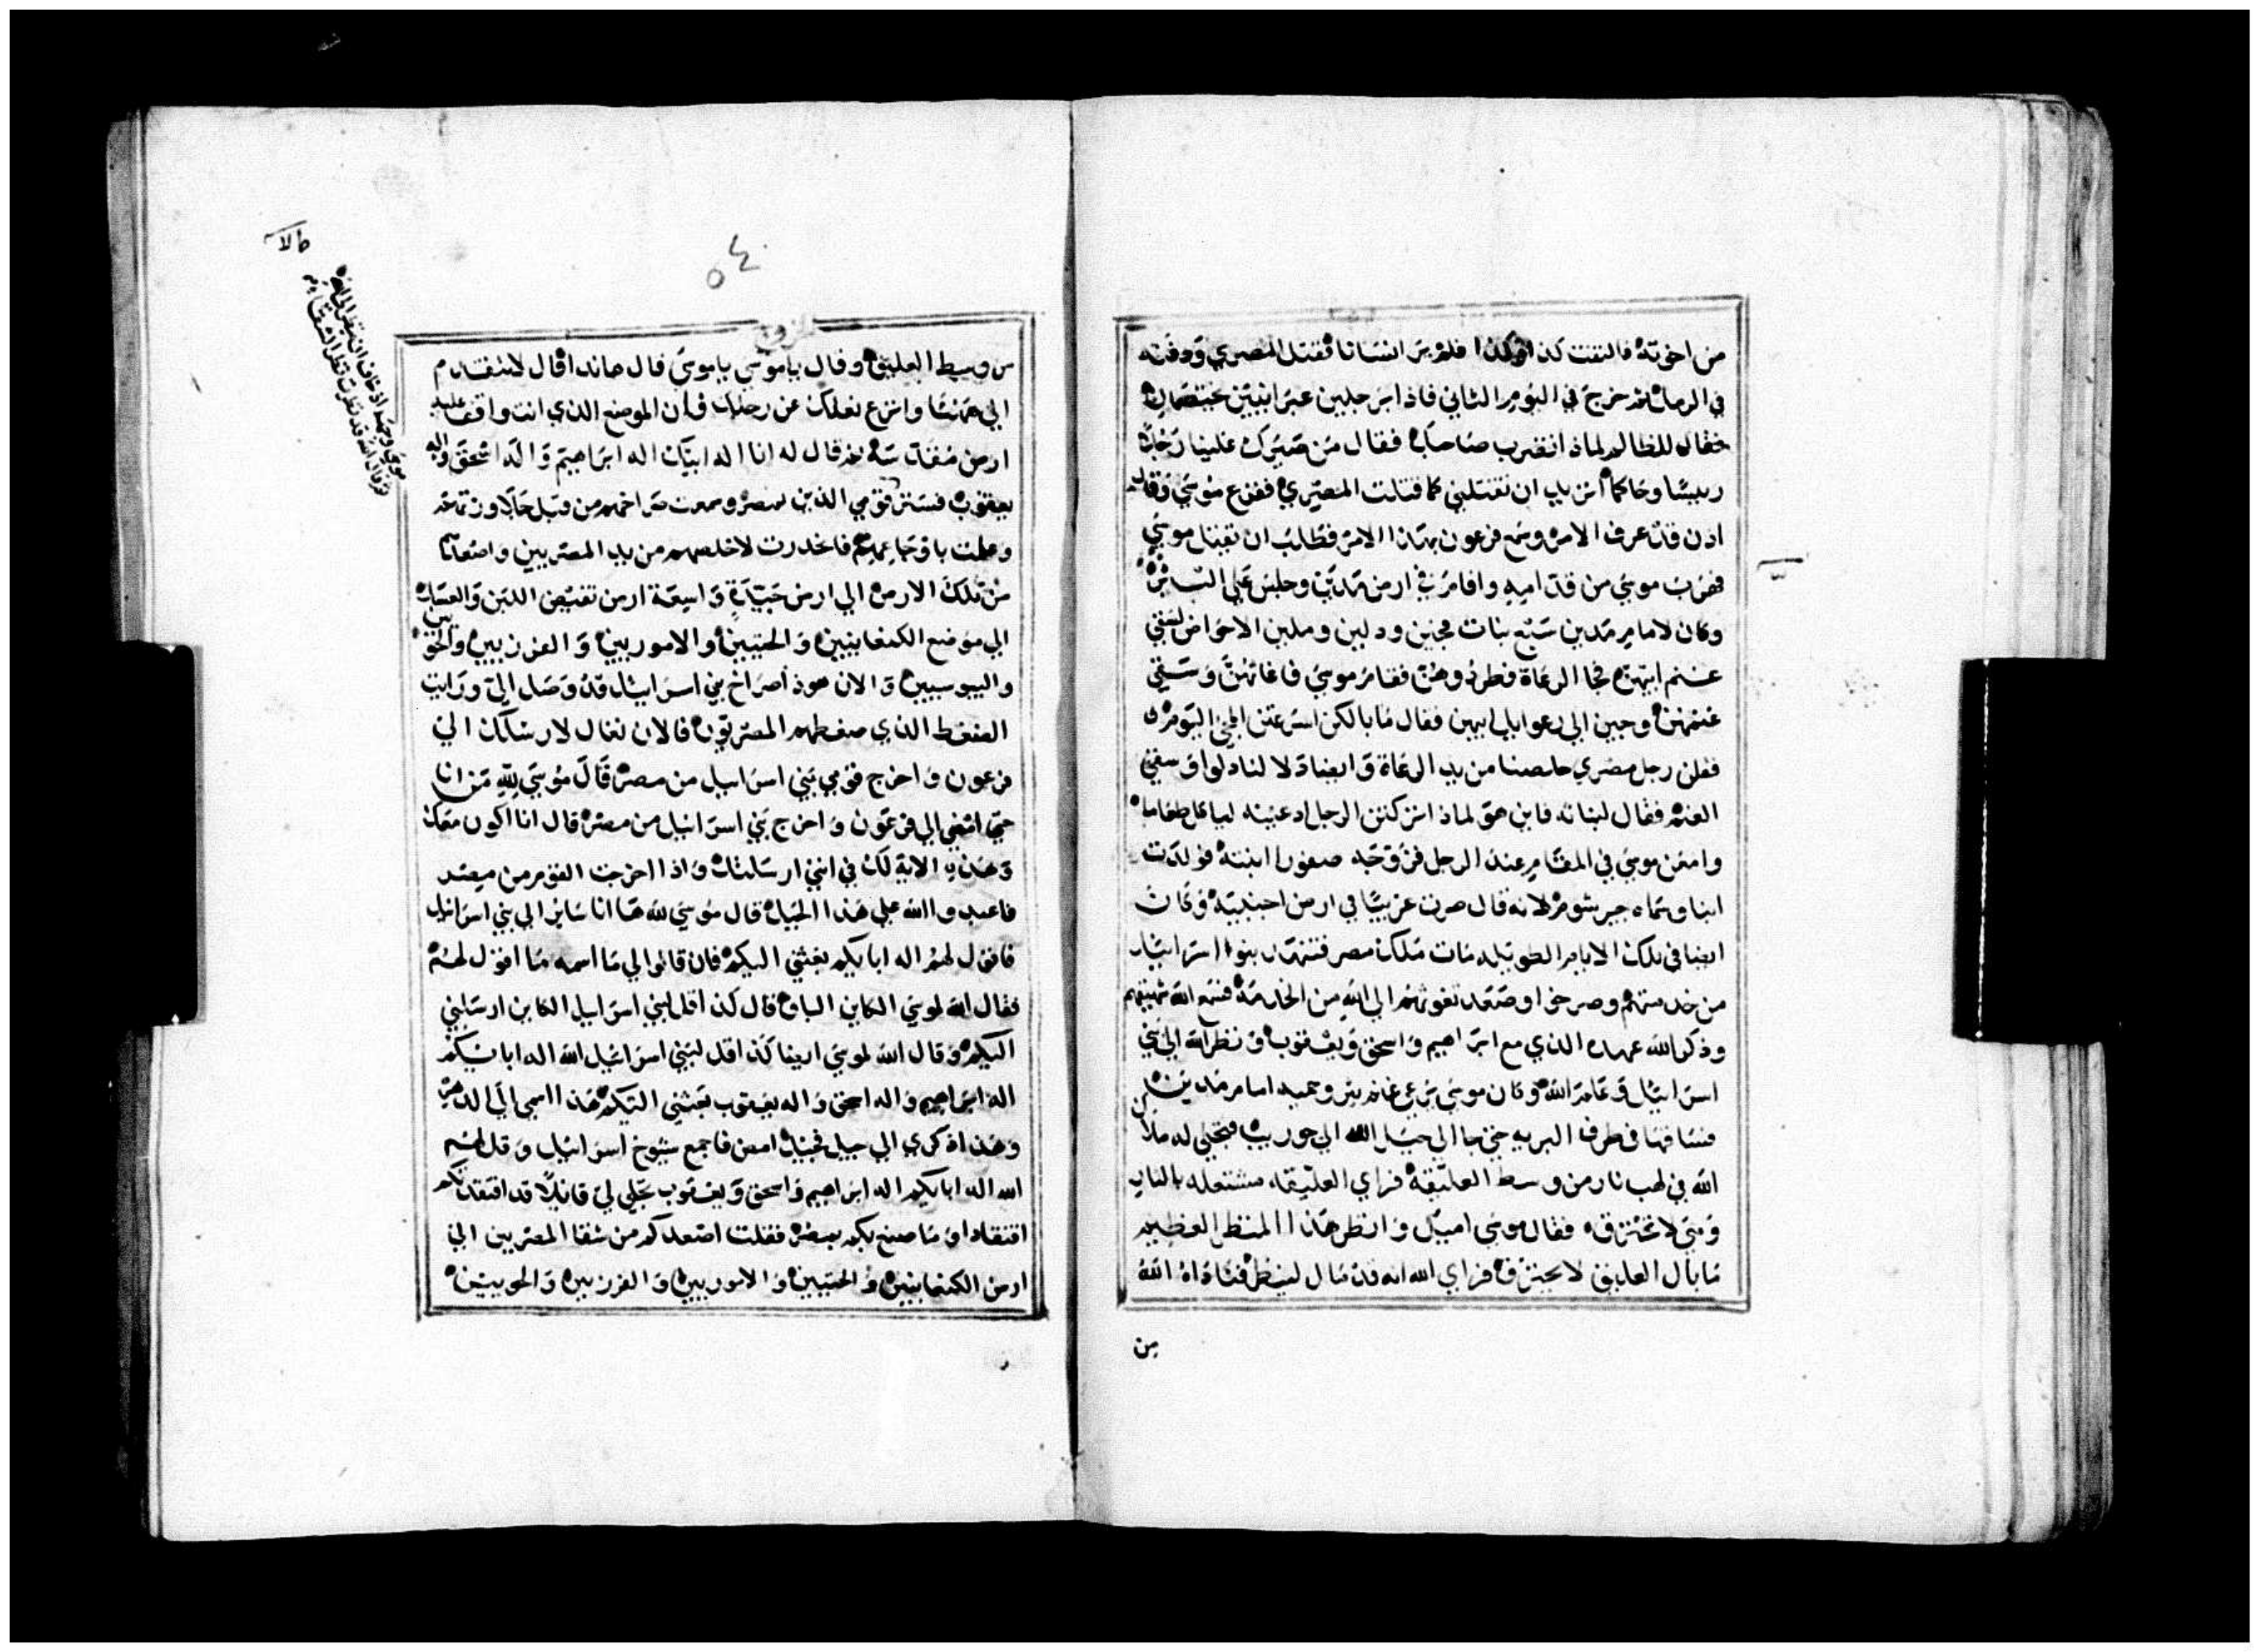 من اخوته فالتفت كذا وكذا فلم ير انسانا فقتل المصري ودفنه
في الرمل ثم خرج في اليوم الثاني فاذا برجلين عبرانيين يختصمان
فقال للظالم لماذا تضرب صاحبك فقال من صيرك علينا رجلا
رييسا وحاكما اتريد ان تقتلني كما قتلت المصري ففزع موسي وقال
اذن قد عرف الامر وسمع فرعون بهذا الامر فطلب ان يقتل موسي
فهرب موسي من قدامه واقام في ارض مدين وجلس علي البير
وكان لامام مدين سبع بنات فجين ودلين وملين الاحواض لتسقي
غنم ابيهن فجا الرعاة فطردوهن فقام موسي فاغاثهن وسقي
غنمهن وجين الي رعوايل ابيهن فقال ما بالكن اسرعتن المجي اليوم
فقلن رجل مصري خلصنا من يد الرعاة وايضا دلا لنا دلوا وسقي
الغنم فقال لبناته فاين هو لماذا تركتن الرجل ادعينه لياكل طعاما
وامعن موسي في المقام عند الرجل فزوجه صفورا ابنته فولدت
ابنا وسماه جيرشوم لانه قال صرت غريبا في ارض اجنبية وكان
ايضا في تلك الايام الطويله مات ملك مصر فتنهد بنوا اسراييل
من خدمتهم وصرخوا وصعد تغوثهم الي الله من الخدمة فسمع الله تنهيدهم
وذكر الله عهده الذي مع ابراهيم واسحق ويعقوب ونظر الله الي بني
اسراييل وعلم الله وكان موسي يرعي غنم يثرو حميه امام مدين
فساقها في طرف البريه حتي جا الي جبل الله الي حوريب فتجلي له ملاك
الله في لهب نار من وسط العليقة فراي العليقه مشتعله بالنار
وهي لا تحترق فقال موسي اميل وانظر هذا المنظر العظيم
ما بال العليق لا يحترق فراي الله انه قد مال لينظر فناداه الله
من
٥٤
من وسط العليق وقال يا موسي يا موسي قال هانذا قال لا تتقدم
الي ههنا وانزع نعلك عن رجليك فان الموضع الذي انت واقف عليه
ارض مقدسة ثم قال له انا اله ابيك اله ابراهيم واله اسحق واله
يعقوب قومي الذين بمصر وسمعت صراخهم من قبل
وعلمت باوجاعهم فانحدرت لاخلصهم من يد المصريين واصعدهم
من تلك الارض الي ارض جيدة واسعة ارض تفيض اللبن والعسل
الي موضع الكنعانيين والحيثيين والاموريين والفرزيين والحويين
واليبوسيين والان هوذا صراخ بني اسراييل قد وصل الي ورايت
الضغط الذي ضغطهم المصريون فالان تعال لارسلك الي
فرعون واخرج قومي بني اسراييل من مصر قال موسي لله من انا
حتي امضي الي فرعون واخرج بني اسراييل من مصر قال انا اكون معك
وهذه الاية لك في انني ارسلتك واذا اخرجت القوم من مصر
فاعبدوا الله علي هذا الجبل قال موسي لله ها انا ساير الي بني اسراييل
فاقول لهم اله ابايكم بعثني اليكم فان قالوا لي ما اسمه ما اقول لهم
فقال الله لموسي الكاين الباق قال كذا قل لبني اسراييل الكاين ارسلني
اليكم وقال الله لموسي ايضا كذا قل لبني اسراييل الله اله ابايكم
اله ابراهيم واله اسحق واله يعقوب بعثني اليكم هذا اسمي الي الدهر
وهذا ذكري الي جيل فجيل امض فاجمع شيوخ اسراييل وقل لهم
الله اله ابايكم اله ابراهيم واسحق ويعقوب تجلي لي قايلا قد افتقدتكم
افتقادا وما صنع بكم بمصر فقلت اصعدكم من شقا المصريين الي
ارض الكنعانيين والحيثيين والاموريين والفرزيين والحويين